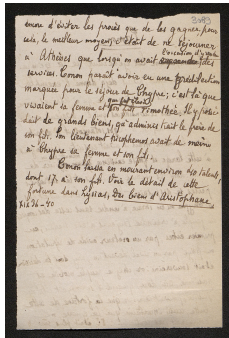 mure d'éviter les procès que de les gagner, pour
cela, le meilleur moyen était de ne séjourner
l'exécution d'
à Athènes que lorsqu'on avait des
services. Conon paraît avoir eu une prédilection
marquée pour le séjour de Chypre; c'est là que
vivaient sa femme et son fils Timothée. Il y possé-
dait de grands biens, qu'administrait le frère de
son fils. Son lieutenant Nicophemos avait de même
à Chypre sa femme et son fils.
Conon laissa en mourant environ 40 talents,
dont 17 à son fils. Voir le détail de cette
fortune dans Lysias, Des biens d'Aristophane,
XIX 36-40